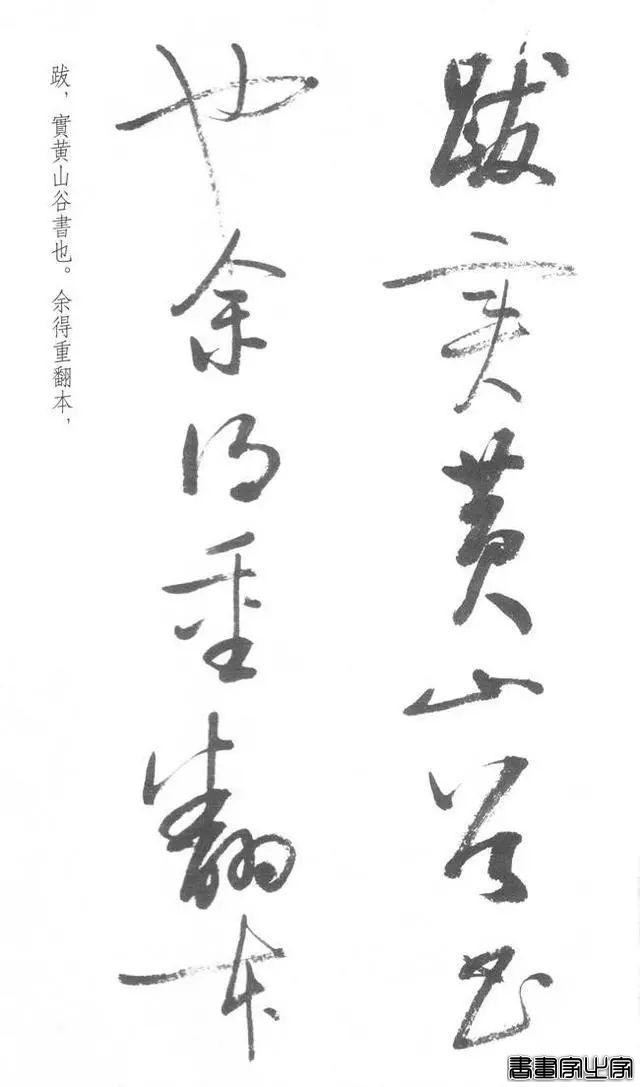 跋實黄山谷書
也余得重翻本
跋，實黄山谷書也。余得重翻本，
書畫家之家